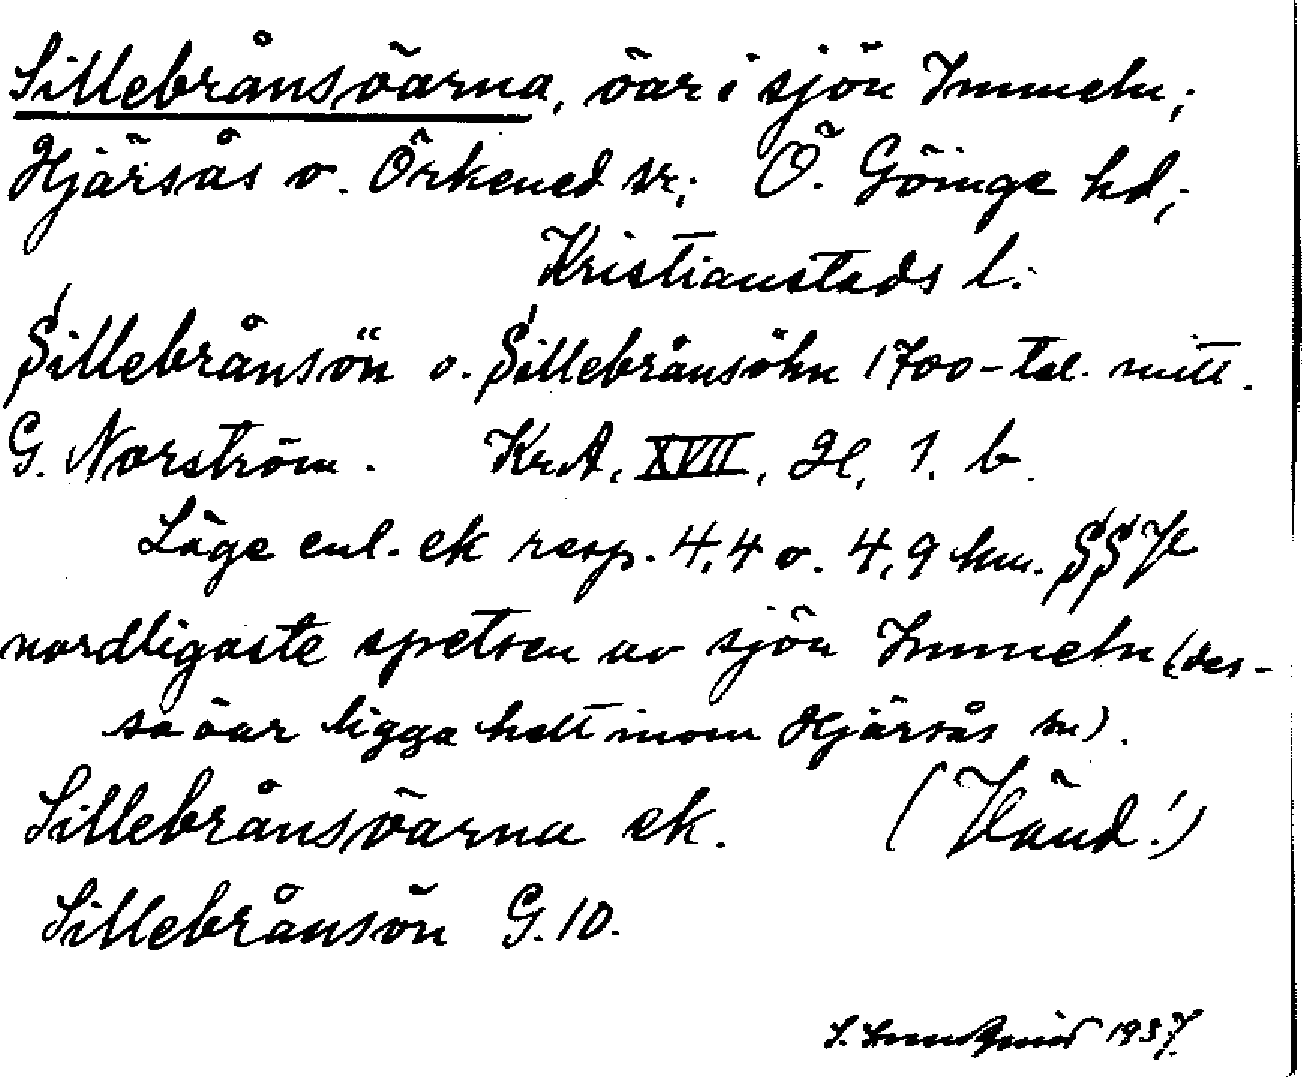 Sillebrånsöarna, öar i sjön Immeln;
Hjärsås o. Örkened sn; Ö. Göinge hd;
Kristianstads l.
Sillebrånsön o. Sillebrånsöhn 1700-tal. mitt.
G. Norström. KrA, XVII, H, 1. b.
Läge enl. ek resp. 4,4 o. 4,9 km. SSV
nordligaste spetsen av sjön Immeln (des-
sa öar ligga helt inom Hjärsås sn).
Sillebrånsöarna ek. (Händ!)
Sillebrånsön G. 10.
S. 1937.